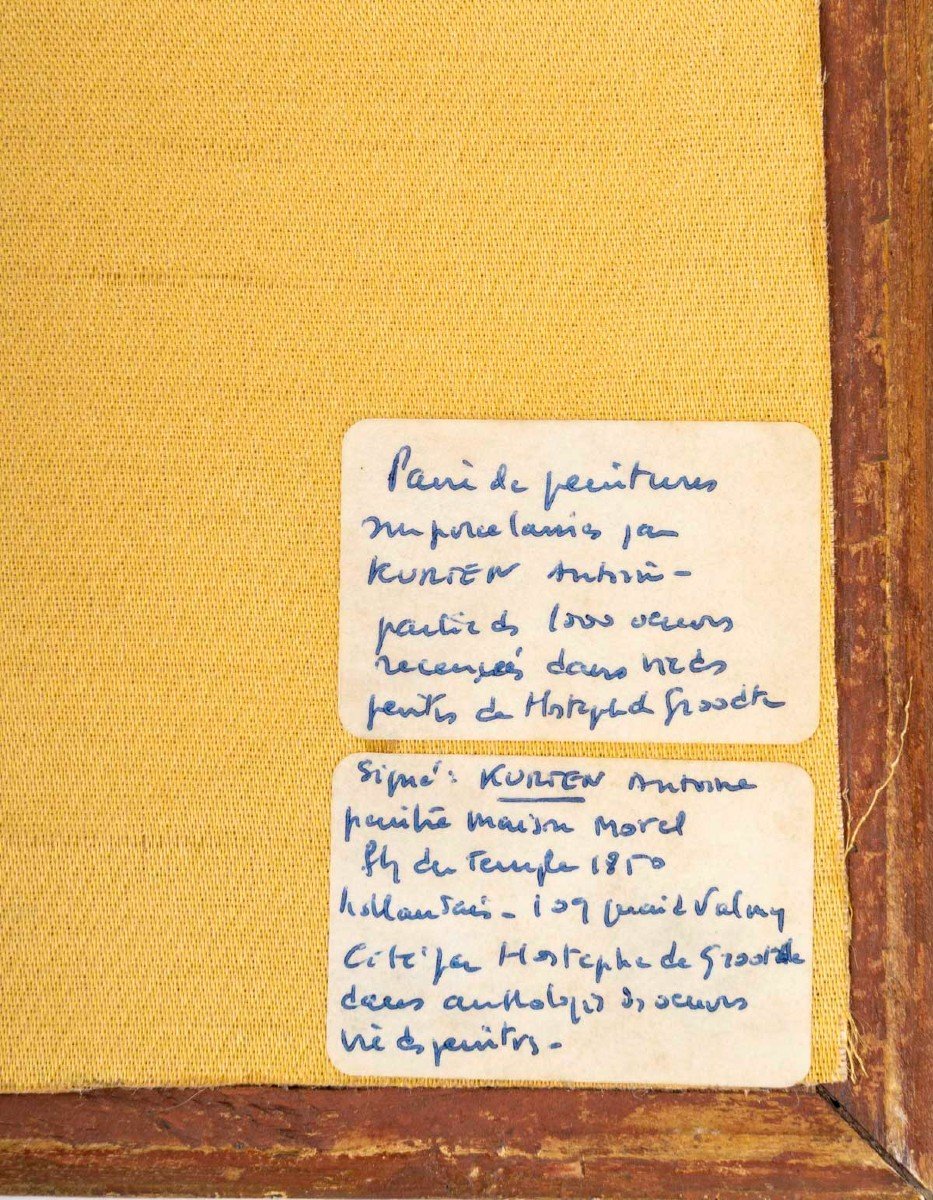 Paire de peintures
sur porcelaines par
KURTEN Antoine -
partie des 1000 oeuvres
recensées dans vie des
peintres de Hostephe de Groodte
Signé : KURTEN Antoine
peintre maison Morel
du Temple 1850
hollandais - 109 quai de Valmy
Cité par Hostephe de Grootde
dans anthologie des oeuvres
vie des peintres -